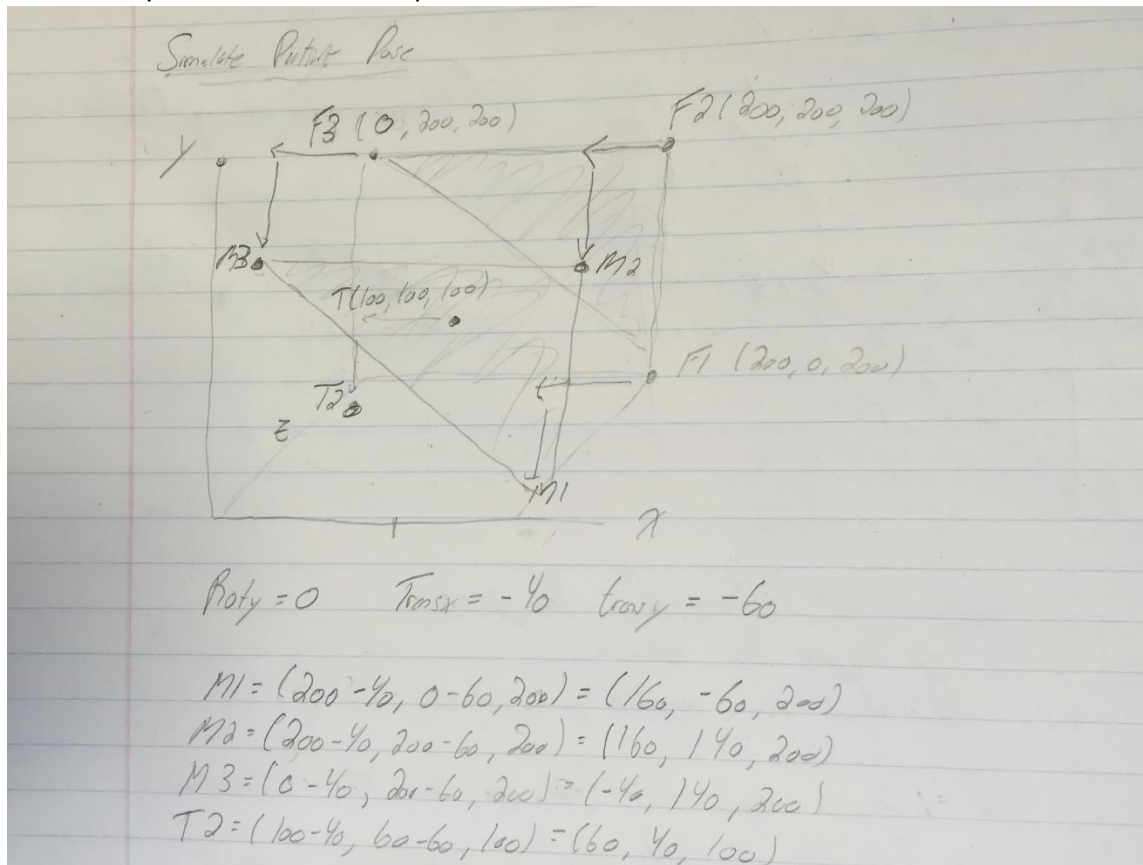 Simulate Patient Pose
F3 (0, 200, 200)
F2 (200, 200, 200)
Y
M3
M2
T(100, 100, 100)
F1 (200, 0, 200)
T2
Z
M1
X
Roty = 0 Transx = -40 transy = -60
M1 = (200-40, 0-60, 200) = (160, -60, 200)
M2 = (200-40, 200-60, 200) = (160, 140, 200)
M3 = (0-40, 200-60, 200) = (-40, 140, 200)
T2 = (100-40, 60-60, 100) = (60, 40, 100)